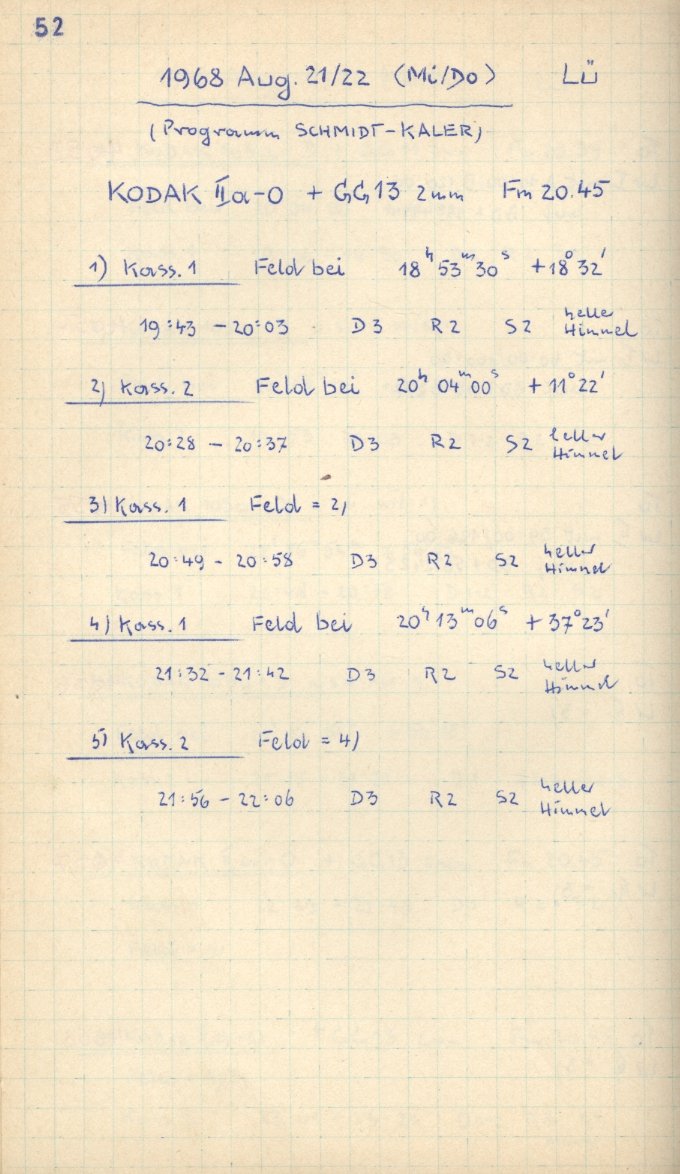 52
1968 Aug. 21/22 (Mi/Do) Lü
(Programm SCHMIDT-KALER)
KODAK IIa-O + GG13 2mm Fm 20.45
1) Kass. 1 Feld bei 18ʰ 53ᵐ 30ˢ +18° 32'
19:43 – 20:03 D3 R2 S2 heller Himmel
2) Kass. 2 Feld bei 20ʰ 04ᵐ 00ˢ +11° 22'
20:28 – 20:37 D3 R2 S2 heller Himmel
3) Kass. 1 Feld = 2)
20:49 – 20:58 D3 R2 S2 heller Himmel
4) Kass. 1 Feld bei 20ʰ 13ᵐ 06ˢ +37° 23'
21:32 – 21:42 D3 R2 S2 heller Himmel
5) Kass. 2 Feld = 4)
21:56 – 22:06 D3 R2 S2 heller Himmel